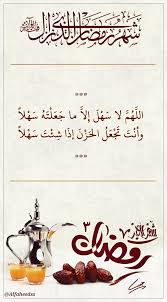 شهر رمضان الذي أنزل
اللَّهُمَّ لا سَهْلَ إِلاَّ ما جَعَلْتَهُ سَهْلاً
وأَنْتَ تَجْعَلُ الحَزْنَ إِذَا شِئْتَ سَهْلاً
٣
رمضان
@Alfaheedsa